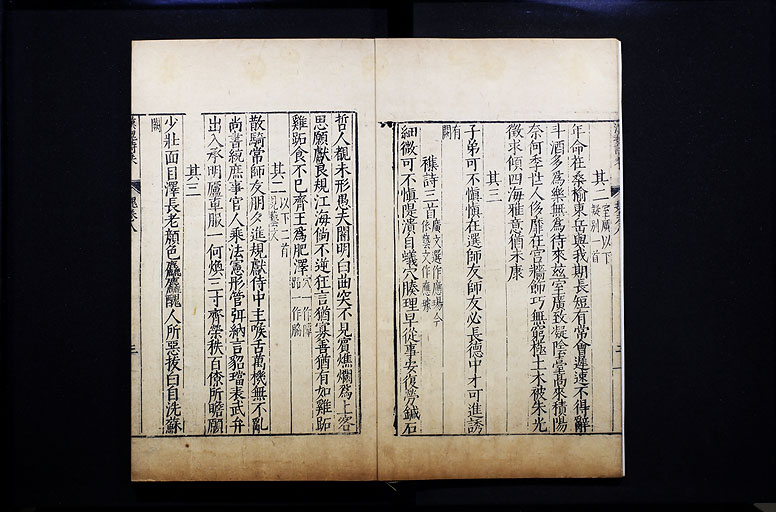 其二 室廣以下疑別一首
年命在桑榆東岳與我期長短有常會遲速不得辭
斗酒多為樂無為待來玆室廣致凝陰臺高來積陽
奈何季世人侈靡在宮牆飾巧無窮極土木被朱光
徵求傾四海雅意猶未康
其三
子弟可不慎慎在選師友師友必長德中才可進誘
有闕
雜詩三首 廣文選作應瑒今依藝文作應璩
細微可不慎隄潰自蟻穴腠理早從事安復勞鍼石
哲人覩未形愚夫闇明白曲突不見賓燋爛為上客
思願獻良規江海倘不逆狂言猶寡善猶有如雞跖
雞跖食不已齊王為肥澤
其二 以下二首見藝文
散騎常師友朋夕進規獻侍中主喉舌萬機無不亂
尚書統庶事官人乘法憲彤管弭納言貂璫表武弁
出入承明廬車服一何煥三寸齊榮秩百僚所瞻願
其三
少壯面目澤長老顏色麤麤醜人所惡拔白自洗蘇
闕